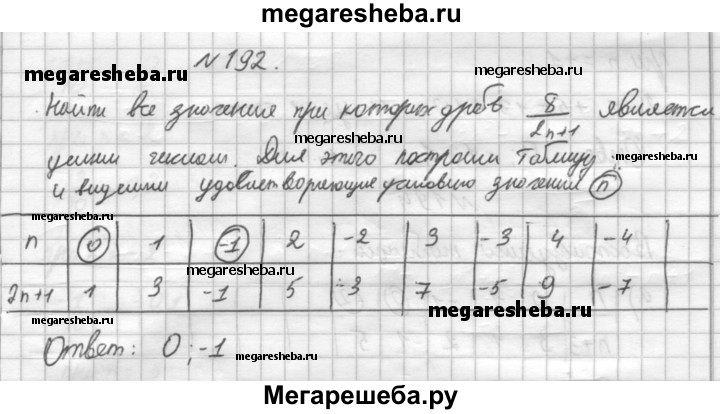 megaresheba.ru
N 192.
megaresheba.ru megaresheba.ru
Найти все значения при которых дробь 8/2n+1 является
megaresheba.ru
целым числом. Для этого построим таблицу
и выделим удовлетворяющие условию значения n
megaresheba.ru megaresheba.ru
n 0 1 -1 2 -2 3 -3 4 -4
megaresheba.ru
2n+1 1 3 -1 5 -3 7 -5 9 -7
megaresheba.ru megaresheba.ru
Ответ: 0; -1 megaresheba.ru
Мегарешеба.ру